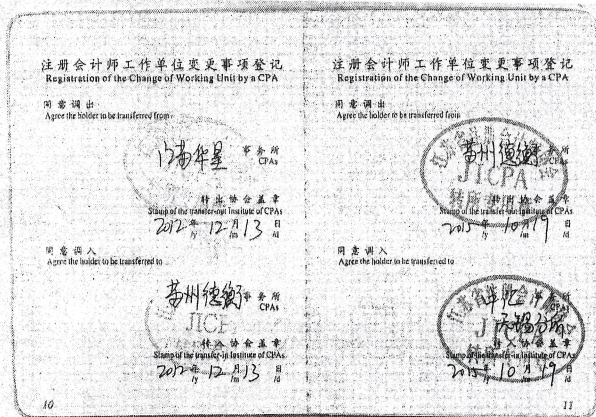 注册会计师工作单位变更事项登记
Registration of the Change of Working Unit by a CPA
同意调出
Agree the holder to be transferred from
事务所
CPAs
转出协会盖章
Stamp of the transfer-out Institute of CPAs
2012年 12月 13日
/y /m /d
同意调入
Agree the holder to be transferred to
苏州德衡 事务所
CPAs
转入协会盖章
Stamp of the transfer-in Institute of CPAs
2012年 12月 13日
/y /m /d
10
注册会计师工作单位变更事项登记
Registration of the Change of Working Unit by a CPA
同意调出
Agree the holder to be transferred from
江苏省注册会计师协会
苏州德衡 事务所
CPAs
JICPA
转出协会盖章
Stamp of the transfer-out Institute of CPAs
2015年 10月 19日
/y /m /d
同意调入
Agree the holder to be transferred to
江苏省注册会计师协会
无锡分所
CPAs
转入协会盖章
Stamp of the transfer-in Institute of CPAs
2015年 10月 19日
/y /m /d
11